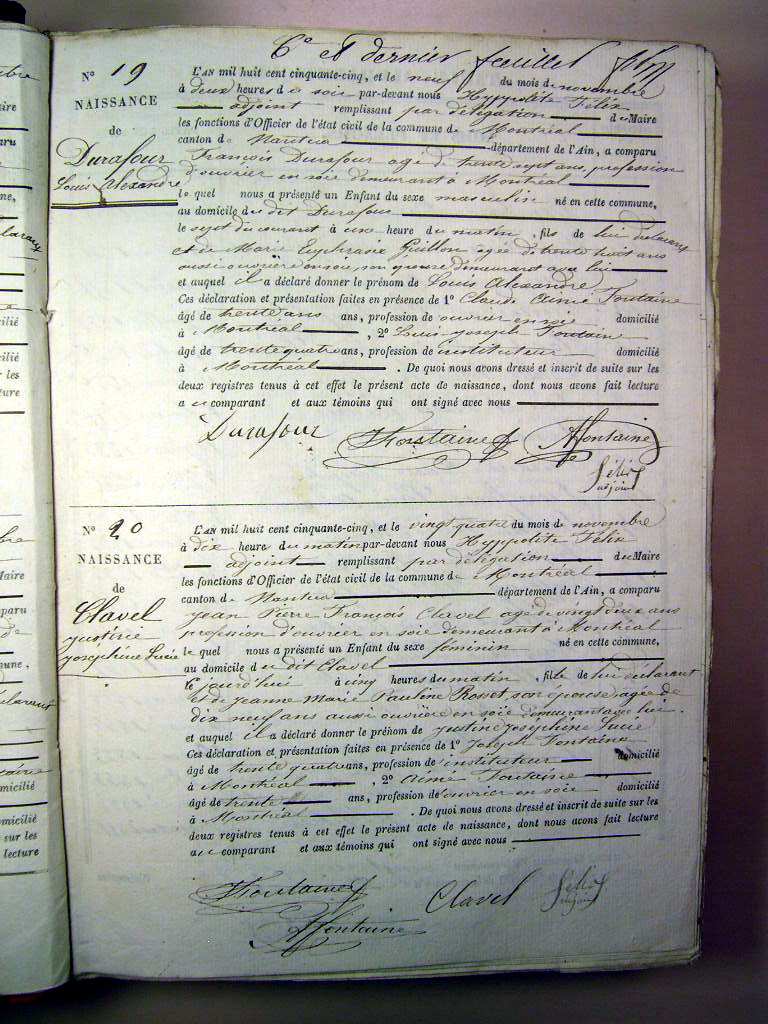 6e et dernier feuillet
N° 19
NAISSANCE
de
Durafour
Louis Alexandre
L'AN mil huit cent cinquante-cinq, et le neuf du mois de novembre
à deux heures d u soir par-devant nous Hyppolite Félix
adjoint remplissant par délégation du Maire
les fonctions d'Officier de l'état civil de la commune de Montréal
canton de Nantua département de l'Ain, a comparu
François Durafour agé de trente sept ans, profession
d'ouvrier en soie demeurant à Montréal
le quel nous a présenté un Enfant du sexe masculin né en cette commune,
au domicile du dit Durafour
le sept du courant à une heure du matin, fils de lui déclarant
et de Marie Euphrasie Guillon agée de trente huit ans
aussi ouvrière en soie, son épouse demeurant avec lui
et auquel il a déclaré donner le prénom de Louis Alexandre
Ces déclaration et présentation faites en présence de 1° Claude Aimé Fontaine
âgé de trente ans ans, profession de ouvrier en soie domicilié
à Montréal, 2° Louis Joseph Fontaine
âgé de trente quatre ans, profession de instituteur domicilié
à Montréal. De quoi nous avons dressé et inscrit de suite sur les
deux registres tenus à cet effet le présent acte de naissance, dont nous avons fait lecture
au comparant et aux témoins qui ont signé avec nous
Durafour JFontaine AFontaine
Félix
adjoint
N° 20
NAISSANCE
de
Clavel
Justine
Joséphine Lucie
L'AN mil huit cent cinquante-cinq, et le vingt quatre du mois de novembre
à dix heure du matin par-devant nous Hyppolite Félix
adjoint remplissant par délégation du Maire
les fonctions d'Officier de l'état civil de la commune de Montréal
canton de Nantua département de l'Ain, a comparu
Jean Pierre François Clavel age de vingt deux ans
profession d'ouvrier en soie demeurant à Montréal
le quel nous a présenté un Enfant du sexe féminin né en cette commune,
au domicile du dit Clavel
ce jourd'hui à cinq heures du matin, fille de lui déclarant
et de Jeanne Marie Pauline Rosset son épouse, agée de
dix neuf ans aussi ouvrière en soie demeurant avec lui.
et auquel il a déclaré donner le prénom de Justine Joséphine Lucie
Ces déclaration et présentation faites en présence de 1° Joseph Fontaine
âgé de trente quatre ans, profession de instituteur domicilié
à Montréal, 2° Aimé Fontaine
âgé de trente ans, profession de ouvrier en soie domicilié
à Montréal. De quoi nous avons dressé et inscrit de suite sur les
deux registres tenus à cet effet le présent acte de naissance, dont nous avons fait lecture
au comparant et aux témoins qui ont signé avec nous
JFontaine Clavel Félix
adjoint
AFontaine